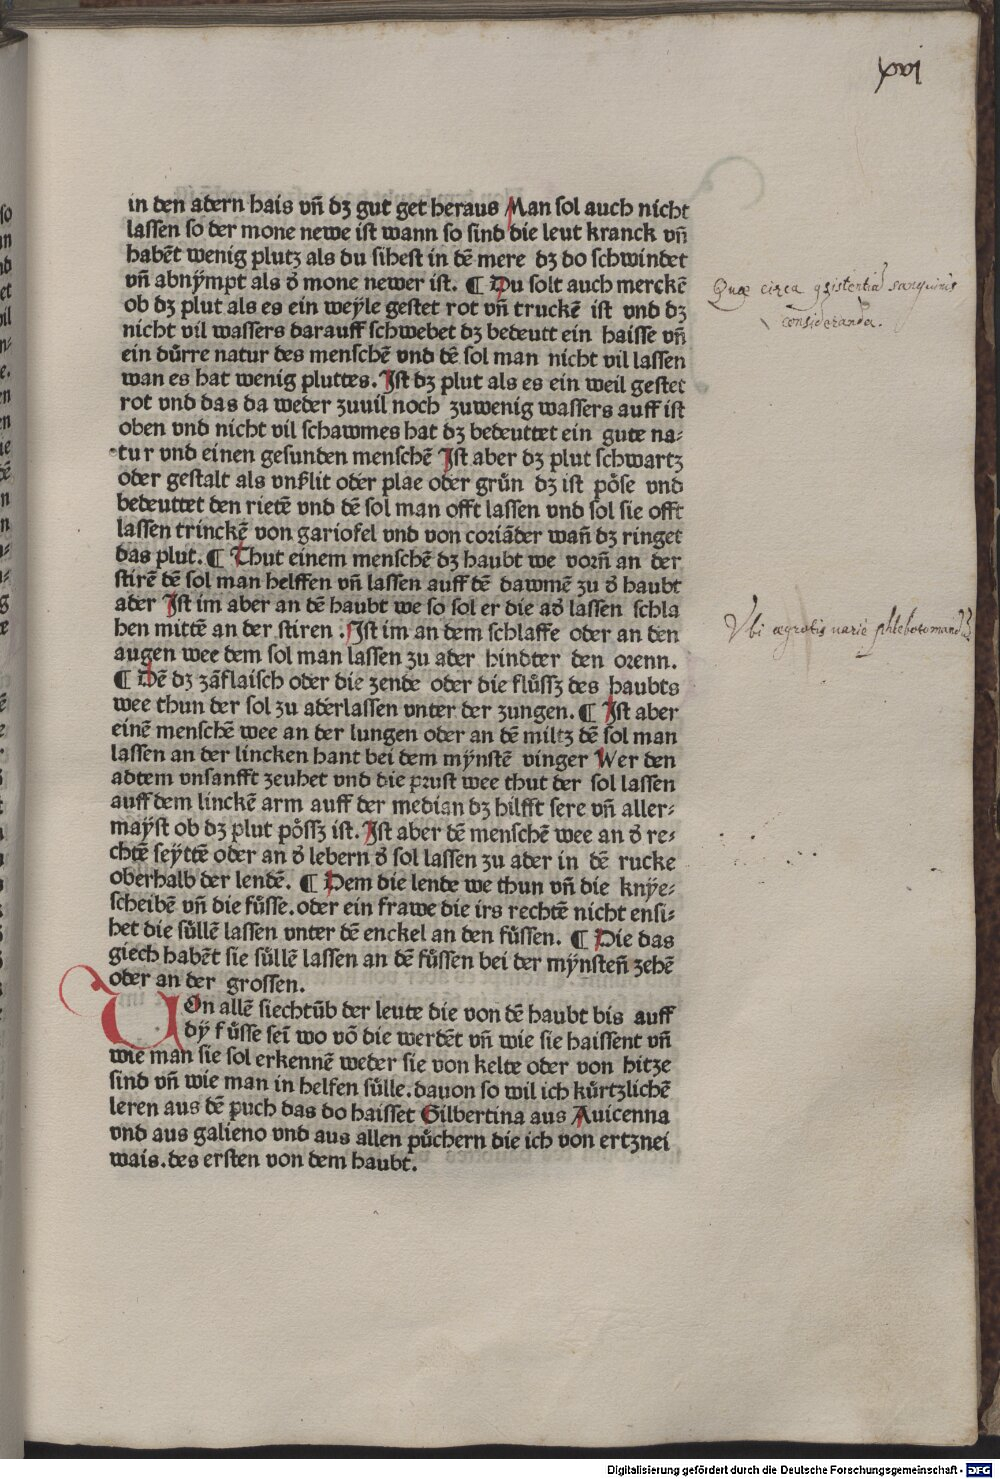 xvi
in den adern hais vn̄ dʒ gut get heraus Man sol auch nicht
lassen so der mone newe ist wann so sind die leut kranck vn̄
habēt wenig plutz als du sihest in dē mere dʒ do schwindet
vn̄ abnÿmpt als d̄ mone newer ist. ¶ Du solt auch merckē
ob dʒ plut als es ein weÿle gestet rot vn̄ truckē ist vnd dʒ
nicht vil wassers darauff schwebet dʒ bedeutt ein haisse vn̄
ein du̇rre natur des menschē vnd dē sol man nicht vil lassen
wan es hat wenig pluttes. Ist dʒ plut als es ein weil gestet
rot vnd das da weder zuuil noch zuwenig wassers auff ist
oben vnd nicht vil schawmes hat dʒ bedeuttet ein gute na⸗
tur vnd einen gesunden menschē Ist aber dʒ plut schwartz
oder gestalt als vnslit oder plae oder gru̇n dʒ ist pȯse vnd
bedeuttet den rietē vnd dē sol man offt lassen vnd sol sie offt
lassen trinckē von gariofel vnd von coriāder wan̄ dʒ ringet
das plut. ¶ Thut einem menschē dʒ haubt we vorn̄ an der
stirē dē sol man helffen vn̄ lassen auff dē dawmē zu d̄ haubt
ader Ist im aber an dē haubt we so sol er die ad̄ lassen schla
hen mittē an der stiren . Ist im an dem schlaffe oder an den
augen wee dem sol man lassen zu ader hindter den orenn.
¶ Dē dʒ zāflaisch oder die zende oder die flu̇ssʒ des haubts
wee thun der sol zu aderlassen vnter der zungen. ¶ Ist aber
einē menschē wee an der lungen oder an dē miltz dē sol man
lassen an der lincken hant bei dem mÿnstē vinger Wer den
adtem vnsanfft zeuhet vnd die prust wee thut der sol lassen
auff dem linckē arm auff der median dʒ hilfft sere vn̄ aller⸗
maÿst ob dʒ plut pȯssʒ ist. Ist aber dē menschē wee an d̄ re⸗
chtē seÿttē oder an d̄ lebern d̄ sol lassen zu ader in dē rucke
oberhalb der lendē. ¶ Dem die lende we thun vn̄ die knÿe⸗
scheibē vn̄ die fu̇sse. oder ein frawe die irs rechtē nicht ensi⸗
het die su̇llē lassen vnter dē enckel an den fu̇ssen. ¶ Die das
giech habēt sie su̇llē lassen an dē fu̇ssen bei der mÿnsten̄ zehē
oder an der grossen.
VOn allē siechtūb der leute die von dē haubt bis auff
dÿ fu̇sse sein̄ wo vō die werdēt vn̄ wie sie haissent vn̄
wie man sie sol erkennē weder sie von kelte oder von hitze
sind vn̄ wie man in helfen su̇lle. dauon so wil ich ku̇rtzlichē
leren aus dē puch das do haisset Gilbertina aus Auicenna
vnd aus galieno vnd aus allen pu̇chern die ich von ertznei
wais. des ersten von dem haubt.
Quæ circa ꝯsistentiā sanguinis
consideranda.
Vbi ægrotis varie phlebotomand
Digitalisierung gefördert durch die Deutsche Forschungsgemeinschaft - DFG